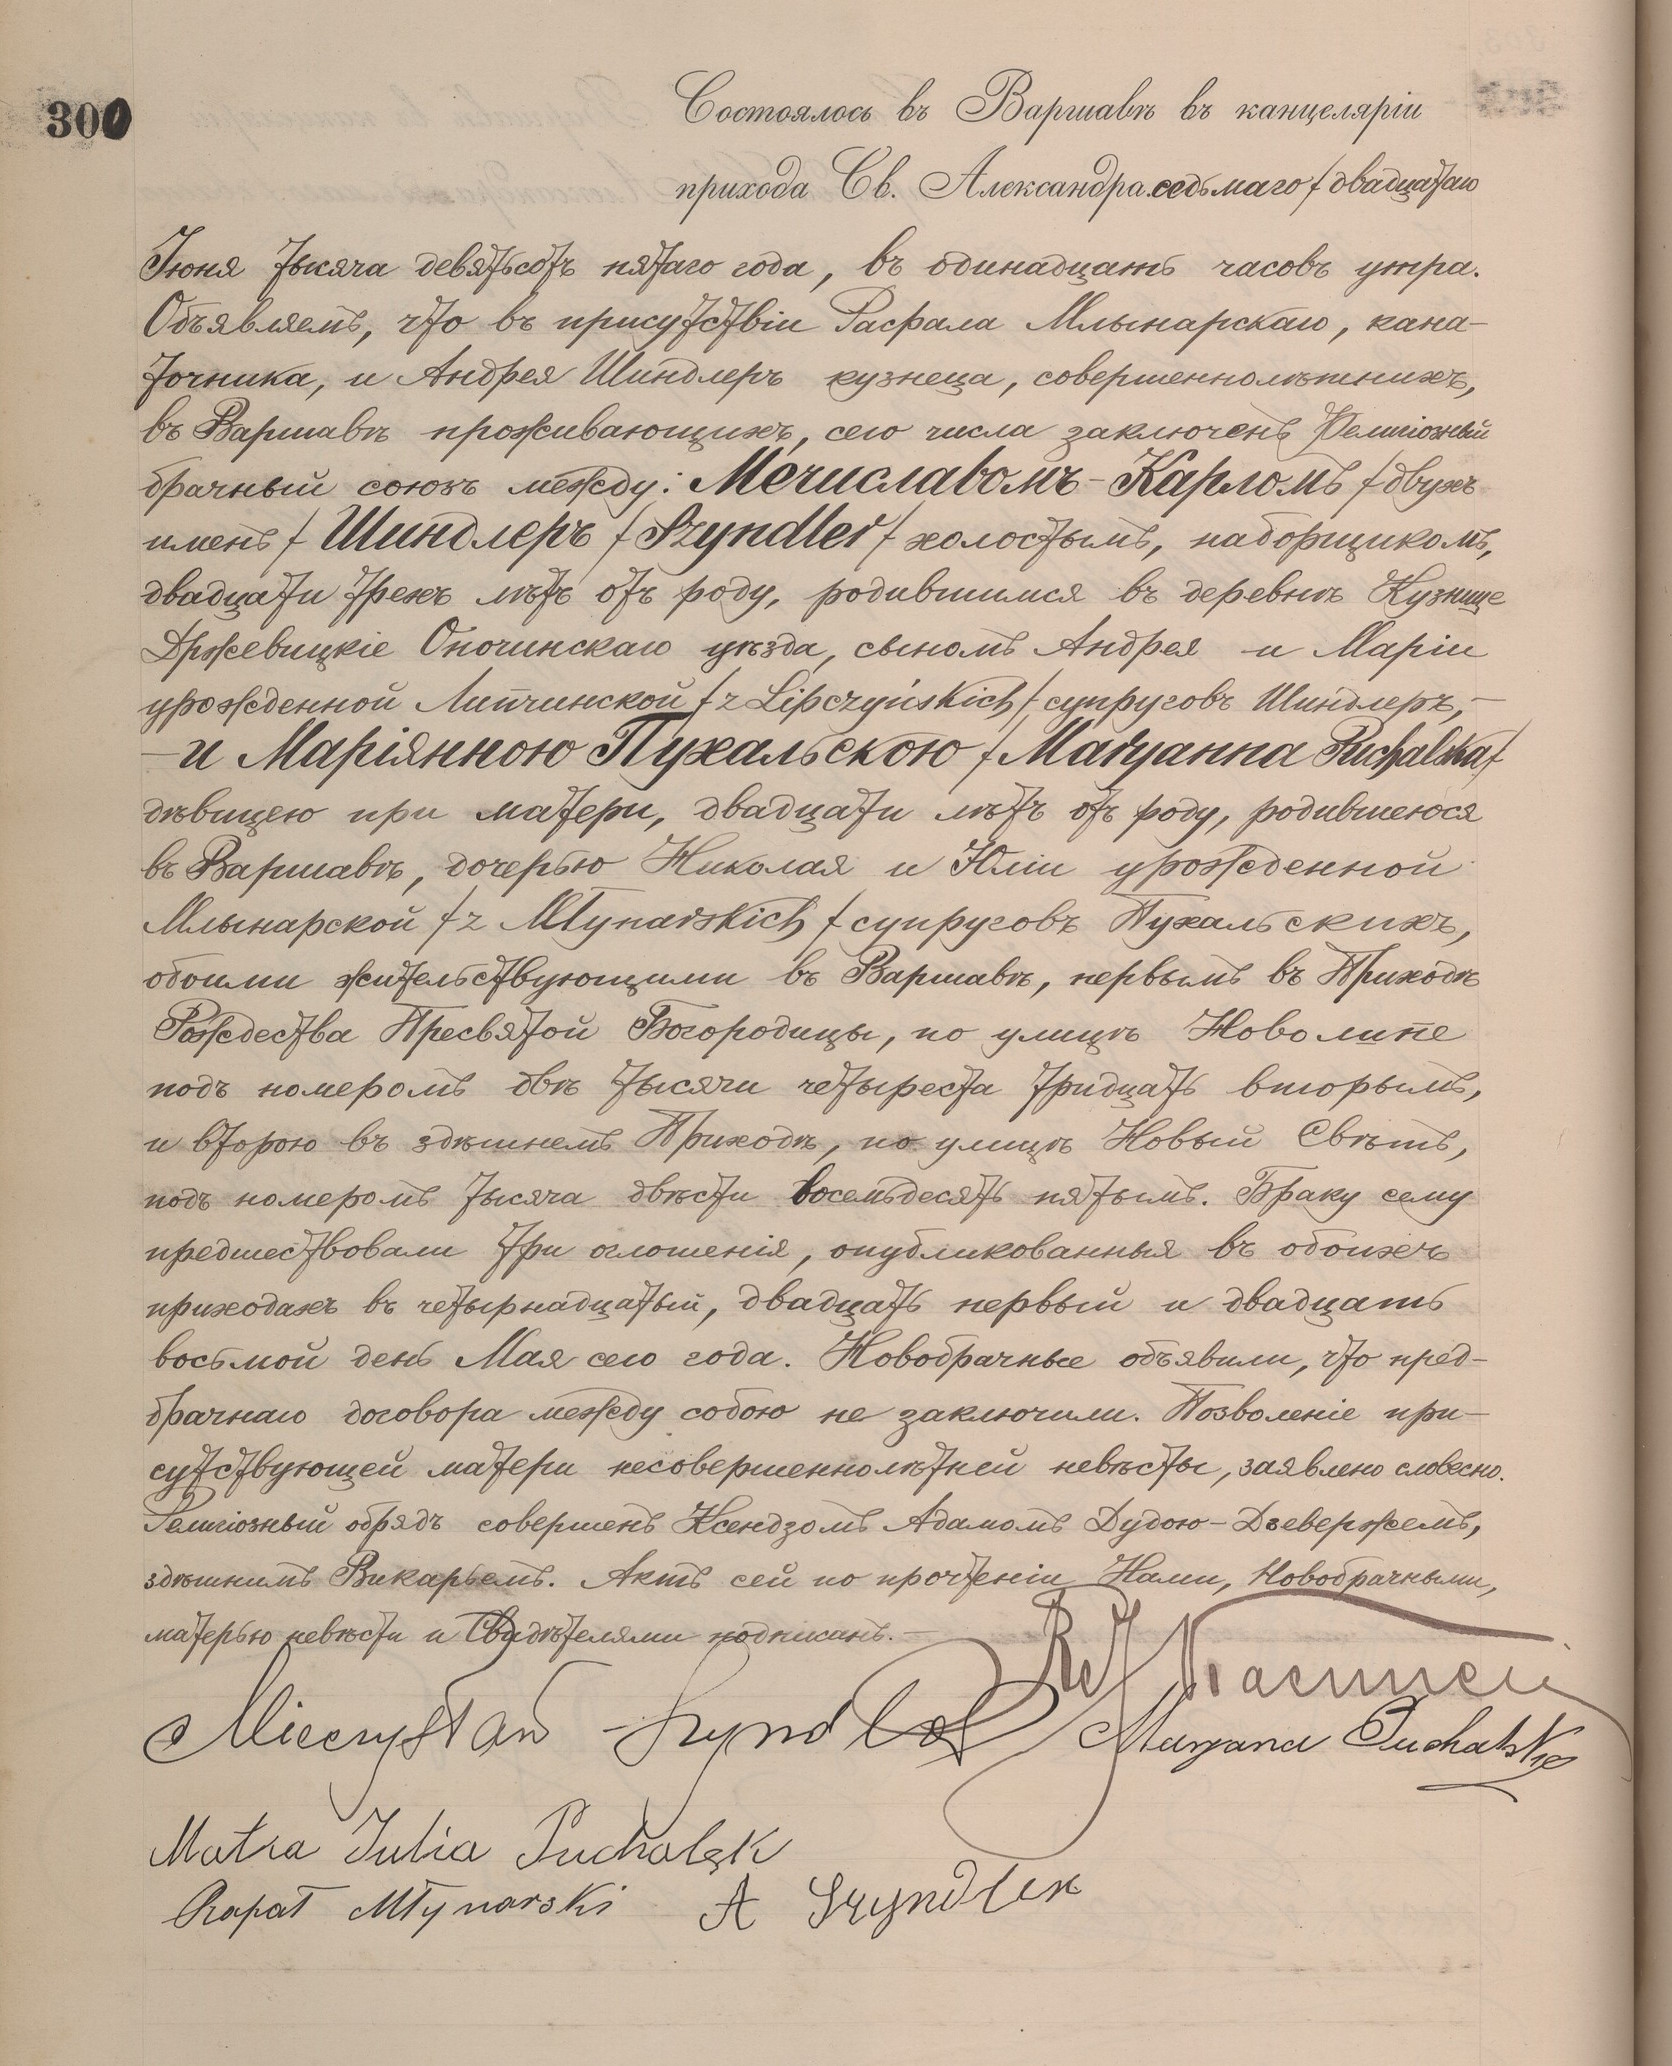 300
Состоялось въ Варшавѣ въ канцеляріи
прихода Св. Александра седьмаго / двадцатаго
Іюня тысяча девятьсотъ пятаго года, въ одинадцать часовъ утра.
Объявляемъ, что въ присутствіи Рафала Млынарскаго, кана-
точника, и Андрея Шиндлеръ кузнеца, совершеннолѣтнихъ,
въ Варшавѣ проживающихъ, сего числа заключенъ Религіозный
брачный союзъ между: Мечиславомъ-Карломъ / двухъ
именъ / Шиндлеръ / Szyndler / холостымъ, наборщикомъ,
двадцати трехъ лѣтъ отъ роду, родившимся въ деревнѣ Кузнице
Држевицкіе Опочинскаго уѣзда, сыномъ Андрея и Маріи
урожденной Липчинской / z Lipczyńskich / супруговъ Шиндлеръ, —
— и Маріянною Пухальскою / Maryanna Puchalska /
дѣвицею при матери, двадцати лѣтъ отъ роду, родившеюся
въ Варшавѣ, дочерью Николая и Юліи урожденной
Млынарской / z Młynarskich / супруговъ Пухальскихъ,
обоими жительствующими въ Варшавѣ, первымъ въ Приходѣ
Рождества Пресвятой Богородицы, по улицѣ Новолипе
подъ номеромъ двѣ тысячи четыреста тридцать вторымъ,
и второю въ здѣшнемъ Приходѣ, по улицѣ Новый Свѣтъ,
подъ номеромъ тысяча двѣсти восемьдесятъ пятымъ. Браку сему
предшествовали три оглошенія, опубликованныя въ обоихъ
приходахъ въ четырнадцатый, двадцать первый и двадцать
восьмой день Мая сего года. Новобрачные объявили, что пред-
брачнаго договора между собою не заключили. Позволеніе при-
сутствующей матери несовершеннолѣтней невѣсты, заявлено словесно.
Религіозный обрядъ совершенъ Ксендзомъ Адамомъ Дудою-Дзевержемъ,
здѣшнимъ Викарьемъ. Актъ сей по прочтеніи Нами, Новобрачными,
матерью невѣсти и Свидѣтелями подписанъ. —
Mieczysław Szyndler Maryana Puchalska
Matka Julia Puchalsk
Rapał Młynarski A Szyndler